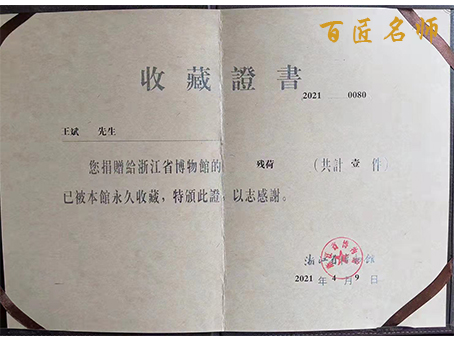 百匠名师
收藏證書
2021 0080
王斌 先生
您捐贈給浙江省博物館的 残荷 (共計 壹 件)
已被本館永久收藏，特頒此證，以志感謝。
浙江省 館
2021 年 4 月 9 日